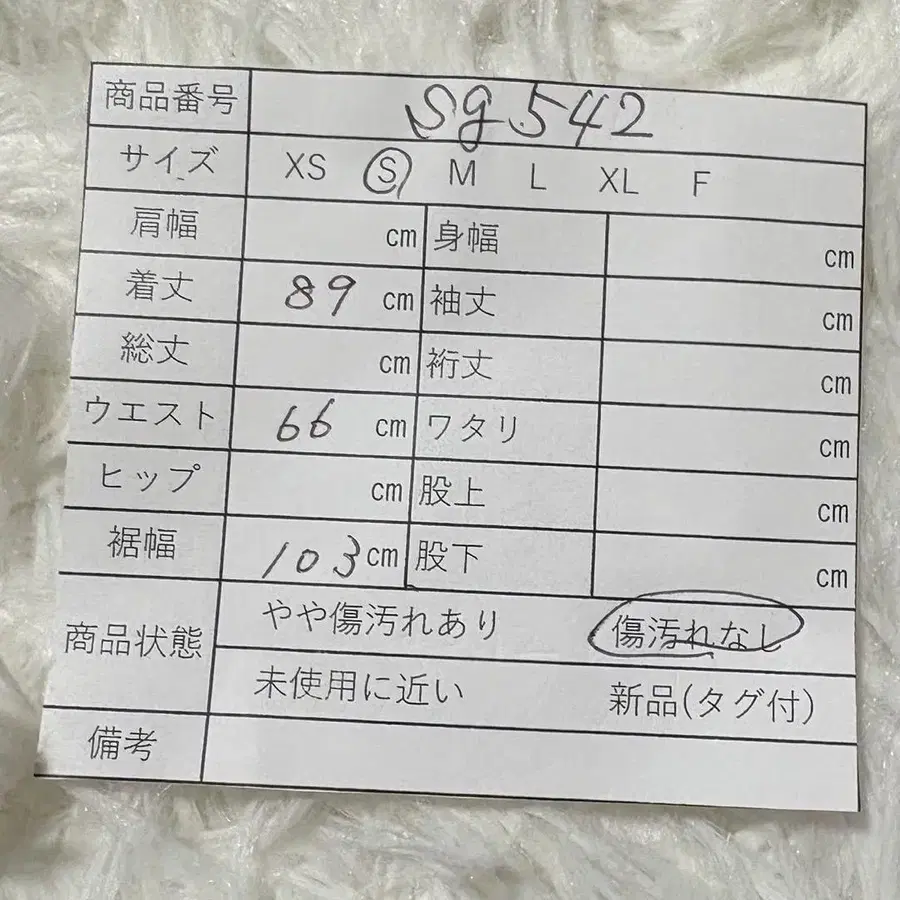 商品番号 sg542
サイズ XS S M L XL F
肩幅 cm 身幅 cm
着丈 89 cm 袖丈 cm
総丈 cm 裄丈 cm
ウエスト 66 cm ワタリ cm
ヒップ cm 股上 cm
裾幅 103cm 股下 cm
商品状態 やや傷汚れあり 傷汚れなし
未使用に近い 新品(タグ付)
備考